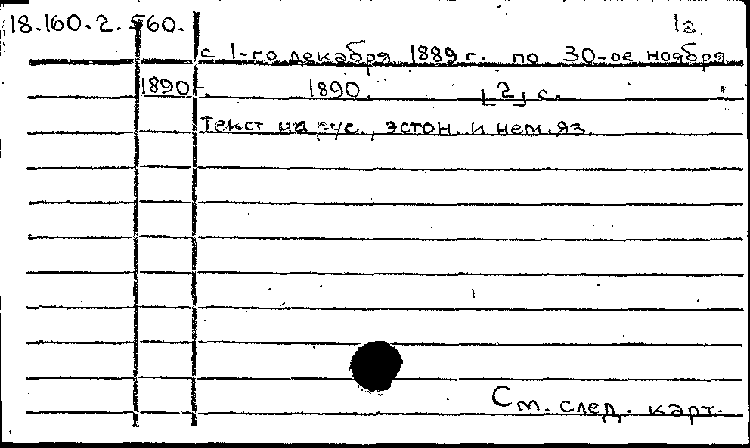 18.160.2.560. 1а
с 1-го декабря 1889 г. по 30-ое ноября
1890 г. 1890. [2] с.
Текст на рус., эстон. и нем. яз.
См. след. карт.